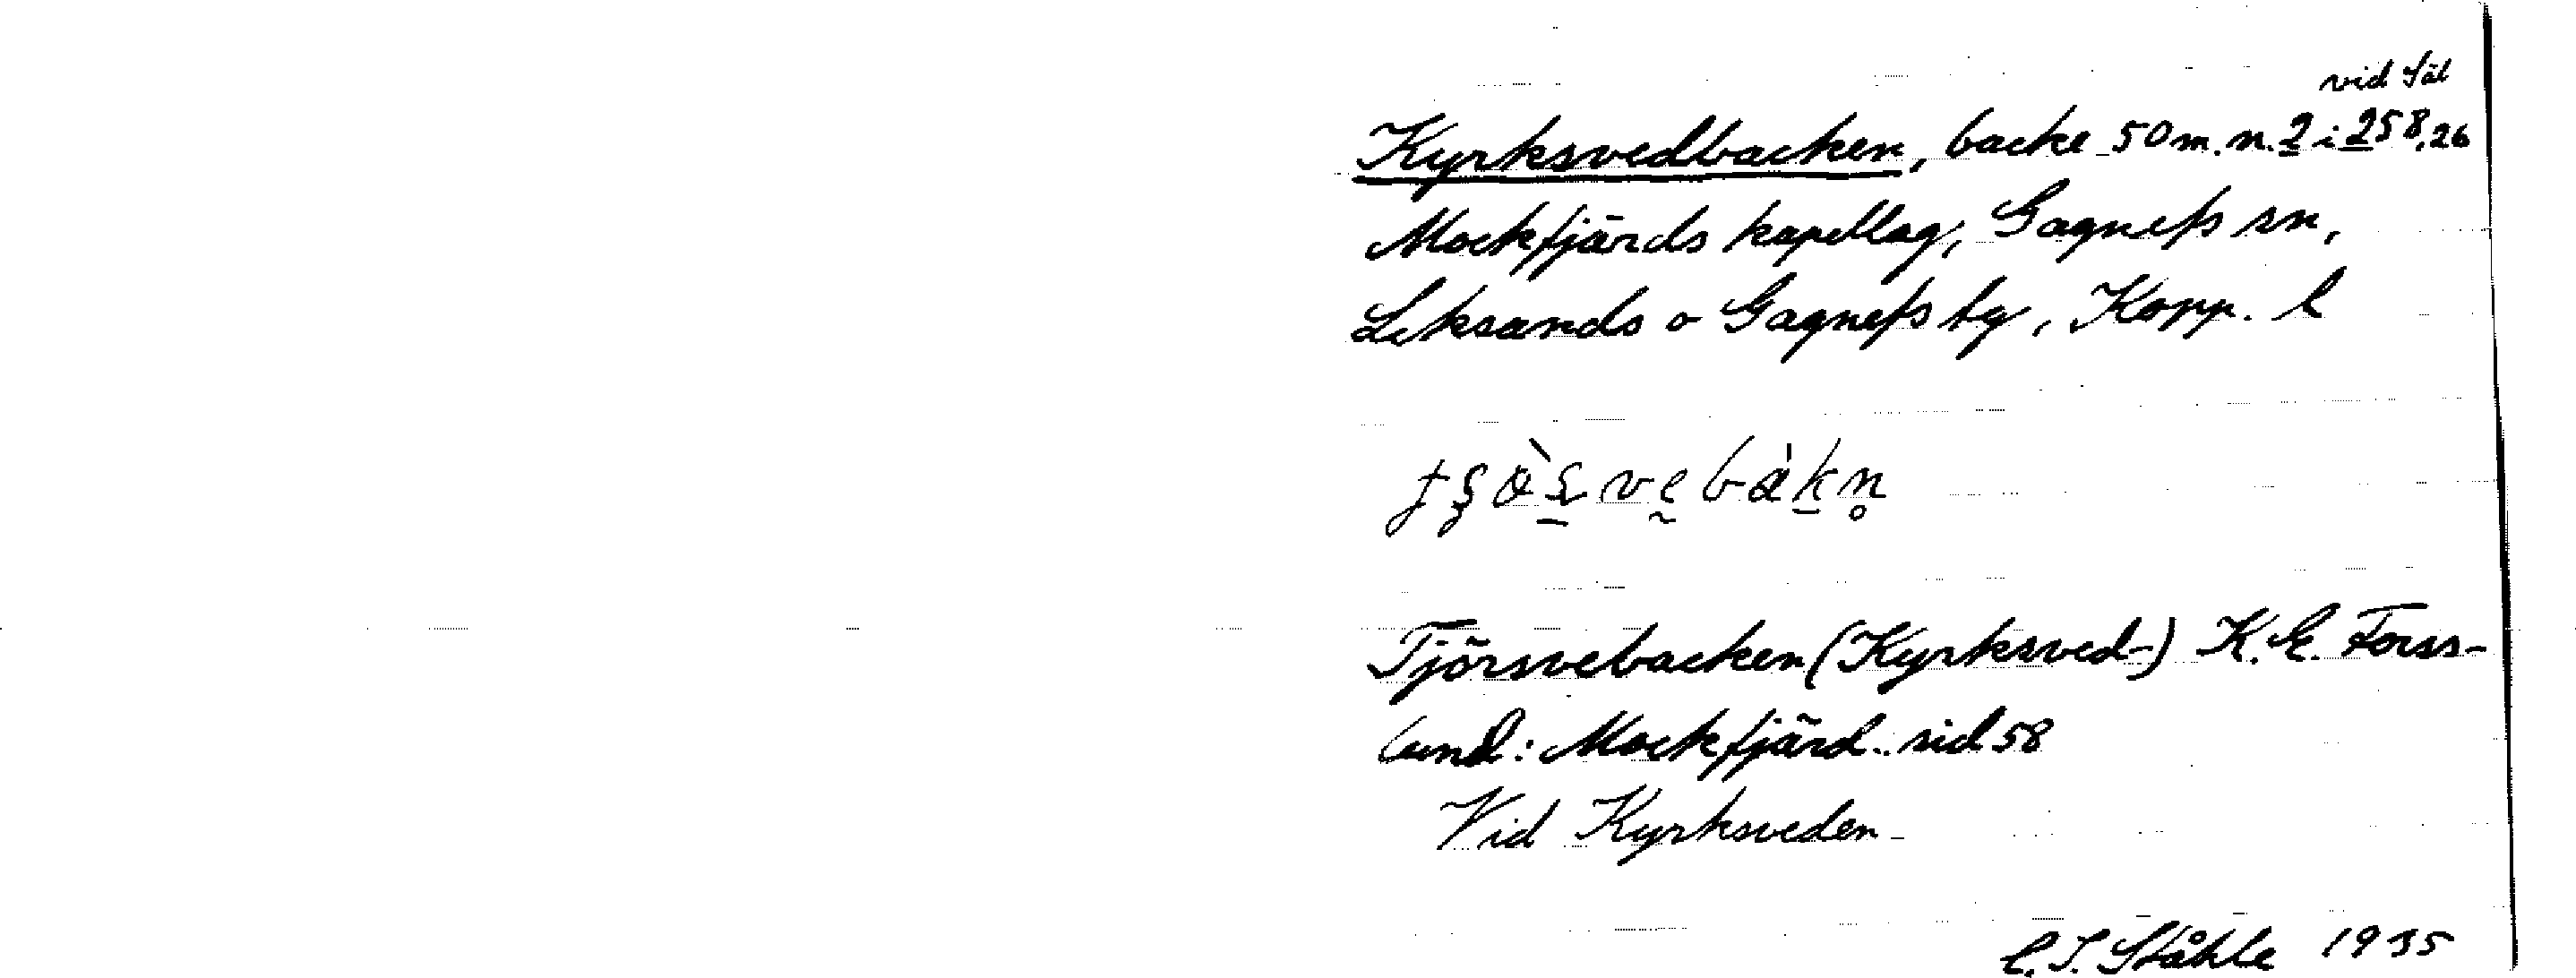 vid Säl
Kyrksvedbacken, backe 50 m. n. 2 i 258,26
Mockfjärds kapellag, Gagnefs sn,
Leksands o Gagnefs tg, Kopp. l
Tjörsvebacken (Kyrksved-) K. E. Forss-
lund: Mockfjärd. sid 58
Vid Kyrksveden
C. I. Ståhle 1935